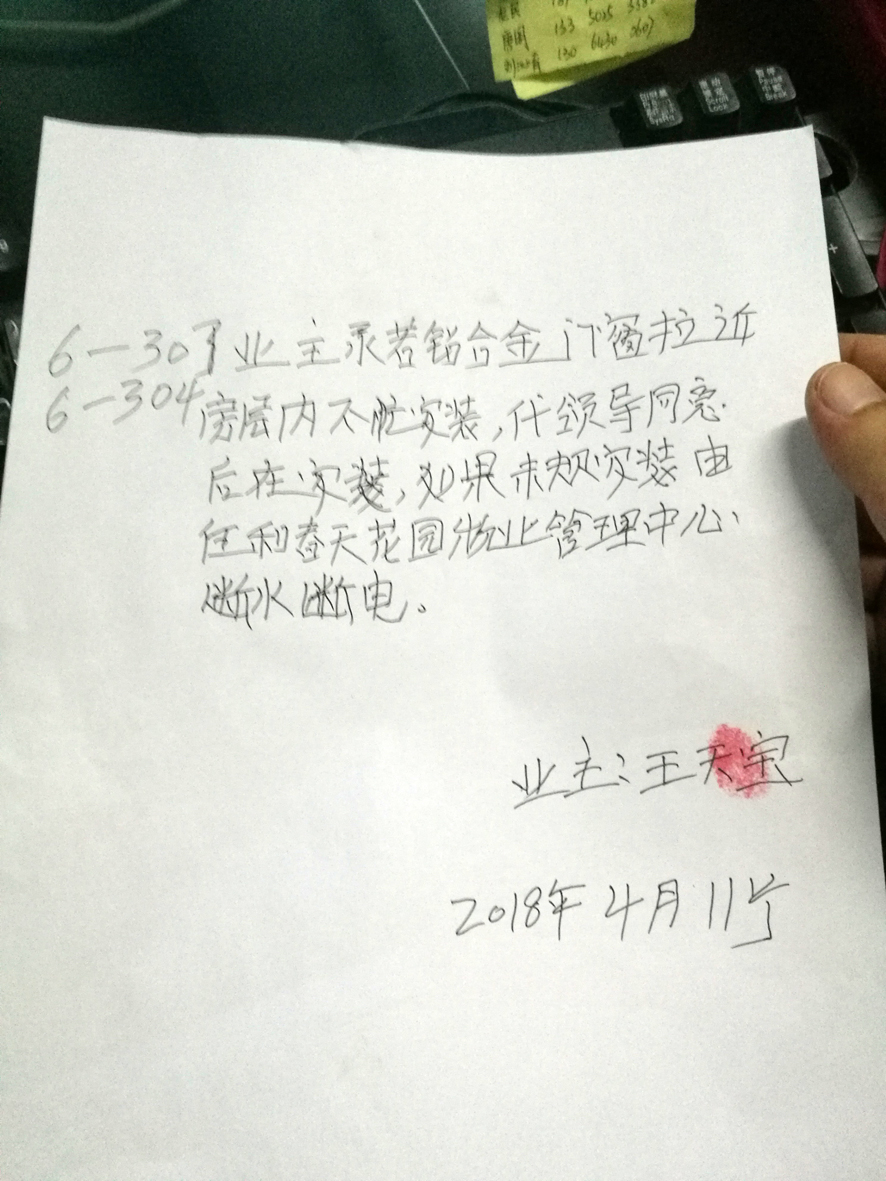 133 5025
130 6430 2607
Scroll
Lock
Pause
Break
6-303业主承若铝合金门窗拉近
6-304房层内不能安装,代领导同意
后在安装,如果未规安装由
任和春天花园物业管理中心
断水断电。
业主:王天宝
2018年4月11号